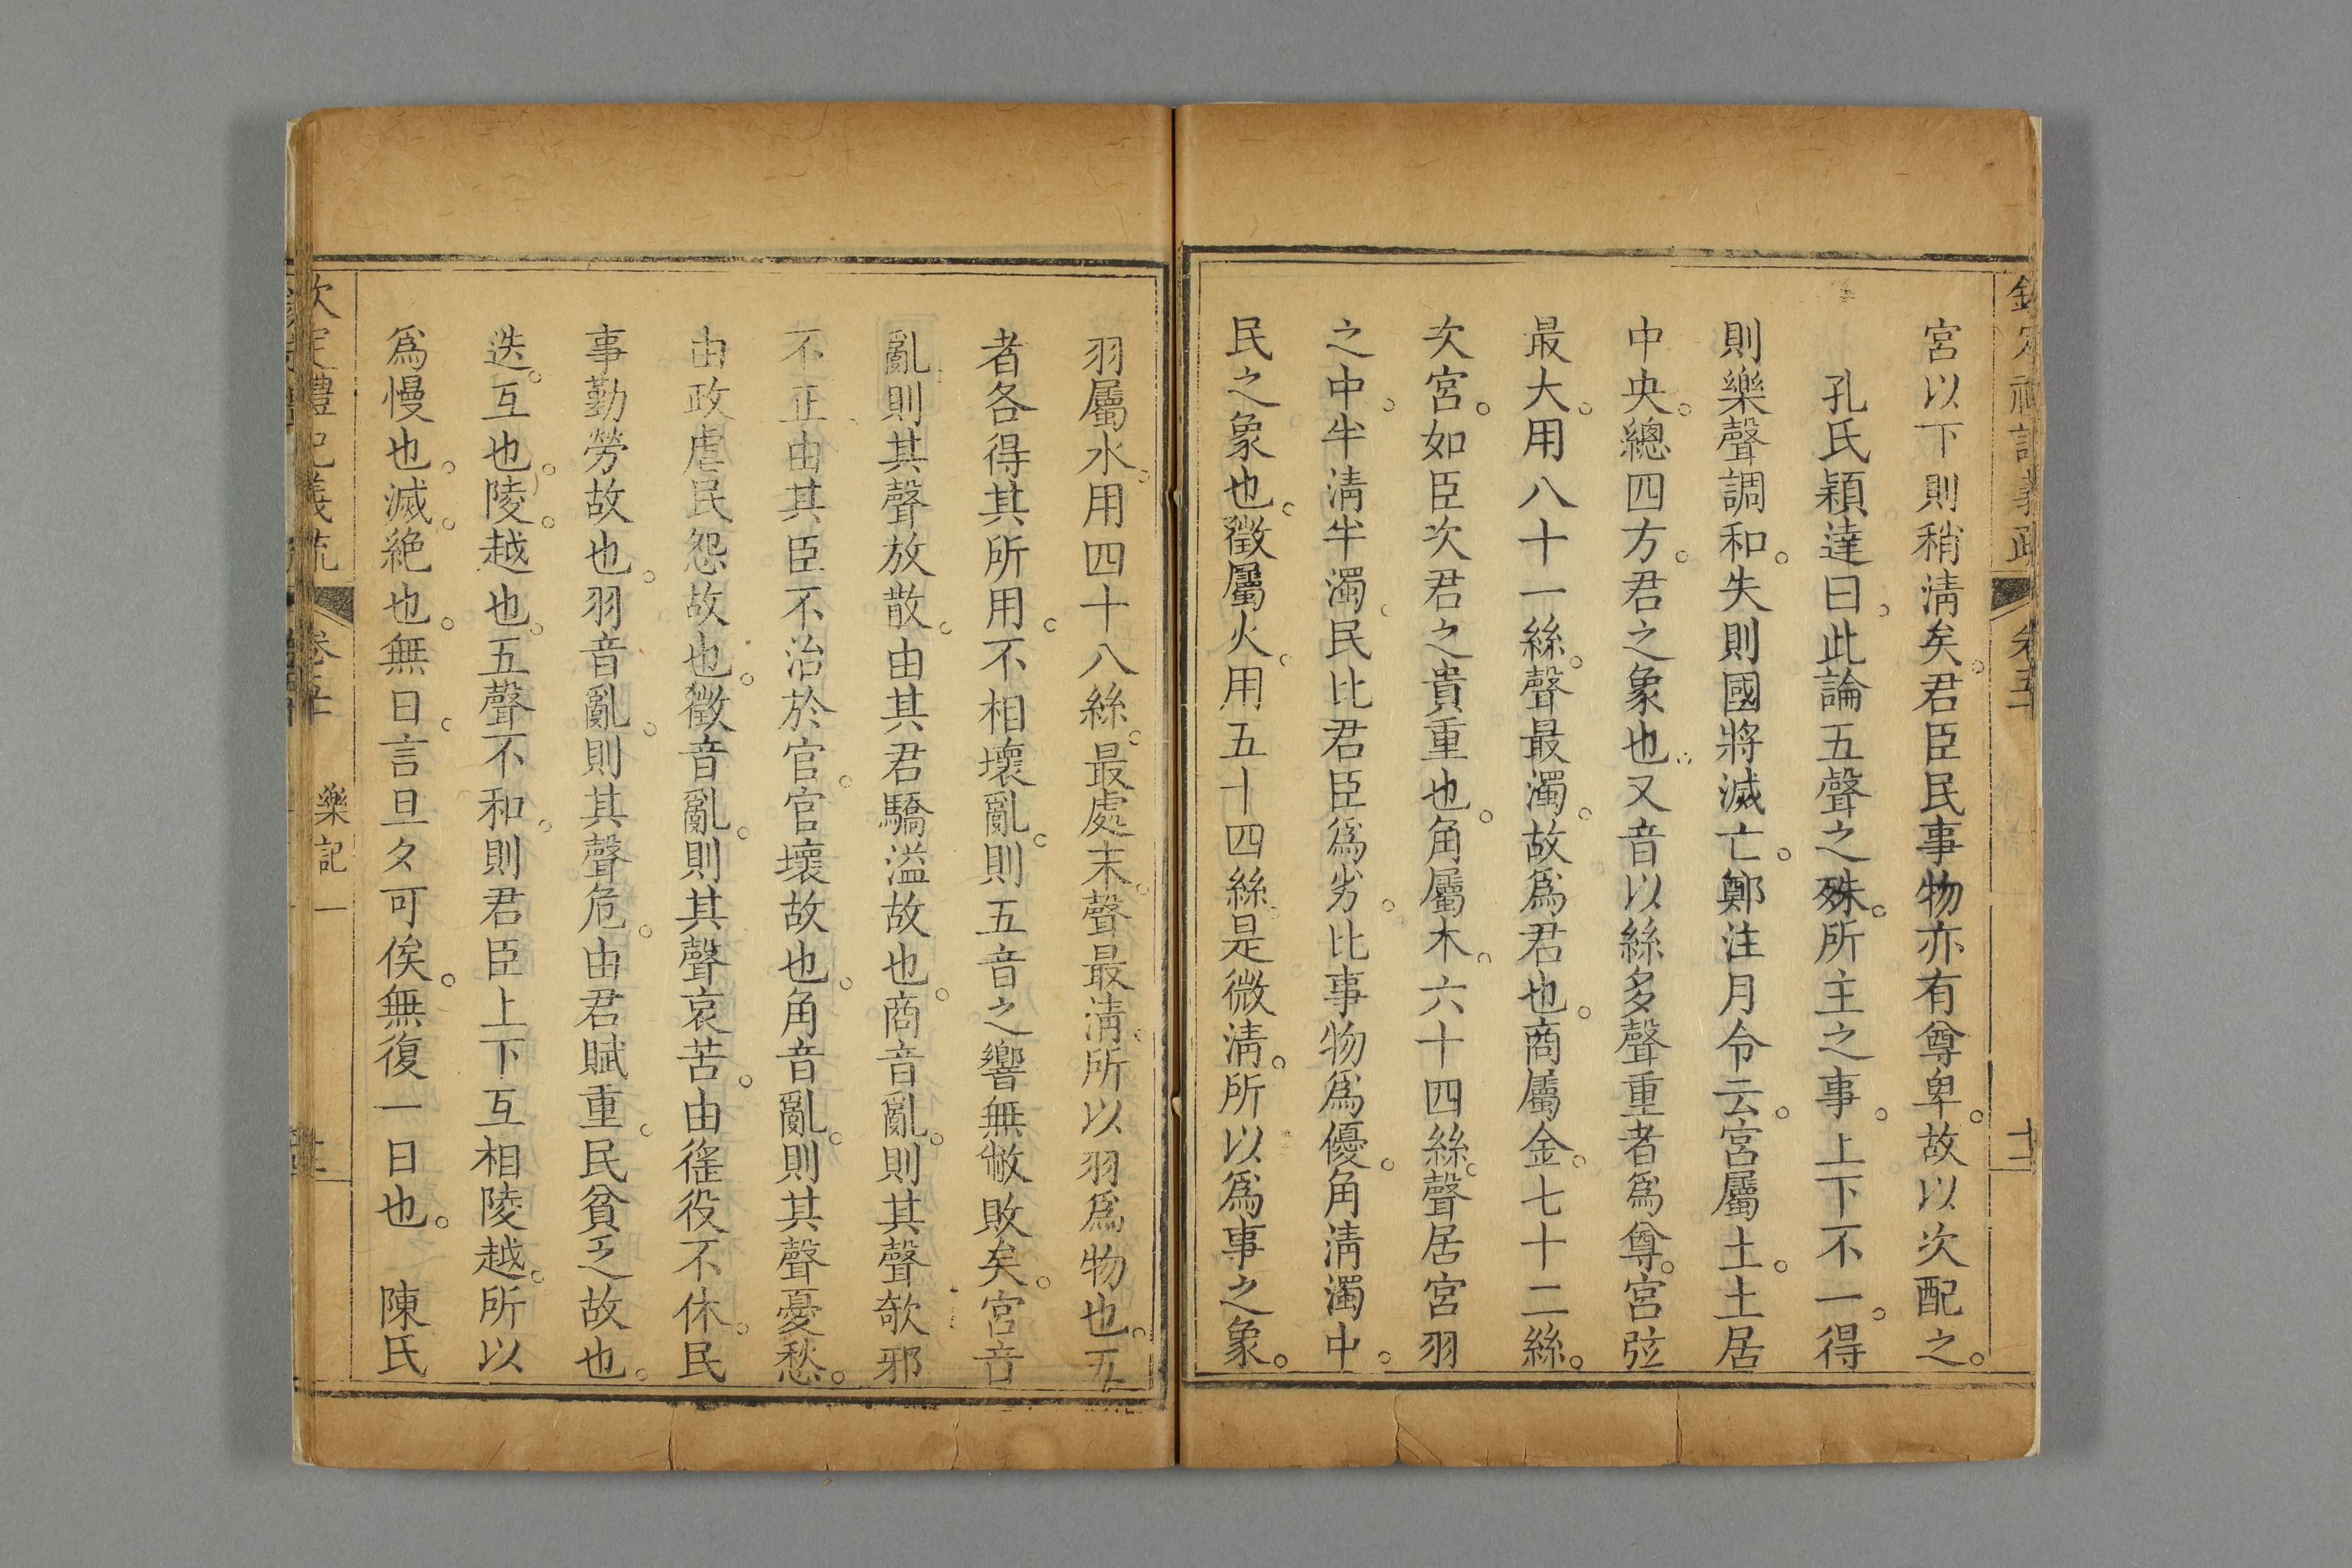 宮以下則稍淸矣。君臣民事物亦有尊卑。故以次配之。
孔氏穎達曰。此論五聲之殊。所主之事。上下不一。得
則樂聲調和。失則國將滅亡。鄭注月令云。宮屬土。土居
中央。總四方。君之象也。又音以絲多聲重者爲尊。宮弦
最大。用八十一絲。聲最濁。故爲君也。商屬金。七十二絲。
次宮。如臣次君之貴重也。角屬木。六十四絲。聲居宮羽
之中。半淸半濁。民比君臣爲劣。比事物爲優。角淸濁中。
民之象也。徵屬火。用五十四絲。是微淸。所以爲事之象。
羽屬水。用四十八絲。最處末。聲最淸。所以羽爲物也。五
者各得其所用。不相壞亂。則五音之響無敝敗矣。宮音
亂則其聲放散。由其君驕溢故也。商音亂。則其聲欹邪
不正。由其臣不治於官。官壞故也。角音亂。則其聲憂愁。
由政虐民怨故也。徵音亂。則其聲哀苦。由徭役不休。民
事勤勞故也。羽音亂。則其聲危。由君賦重。民貧乏故也。
迭。互也。陵。越也。五聲不和。則君臣上下互相陵越。所以
爲慢也。滅。絕也。無日。言旦夕可俟。無復一日也。 陳氏
欽定禮記義疏 卷五
樂記 一